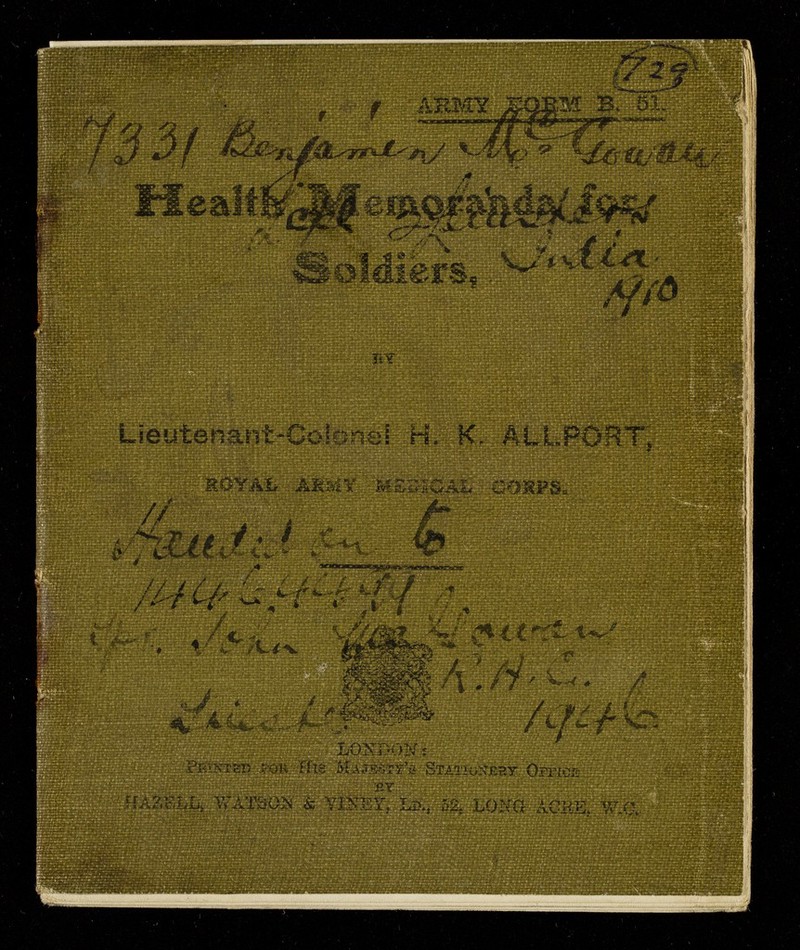 729
ARMY FORM B. 51.
7331 Benjamin McGowan
Health Memoranda for
Soldiers,
India
1910
BY
Lieutenant-Colonel H. K. ALLPORT,
ROYAL ARMY MEDICAL CORPS.
Handed on to
John McGowan
1946
LONDON:
PRINTED FOR HIS MAJESTY'S STATIONERY OFFICE
BY
HAZELL, WATSON & VINEY, LD., 52, LONG ACRE, W.C.